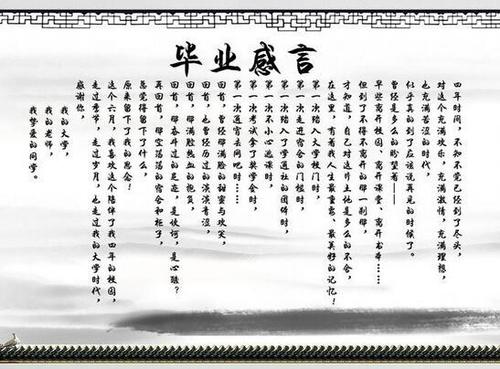 毕业感言
四年时间，不知不觉已经到了尽头，
对这个充满欢乐，充满激情，充满理想，
也充满苦涩的时代，
似乎真的到了该说再见的时候了。
曾经是多么的盼望着——
早些离开校园、离开课堂、离开书本……
但到了不得不离开的那一刻，
才知道，自己对这片土地是多么的不舍，
在这里，有着我人生最重要、最美好的记忆！
第一次踏入大学校门时，
第一次走进宿舍的门槛时，
第一次踏入了学通社的团体时，
第一次不小心逃课时，
第一次考试拿了奖学金时，
第一次通宵去网吧时……
回首，曾经那满脸的甜蜜与欢笑，
回首，也曾经历过的淡淡青涩，
回首，那满腔热血的抱负，
回首，那奋斗过的足迹，是彷徨，是心酸？
再回首，那空荡荡的宿舍和柜子，
总觉得留下了什么，
原来留下了我的思念！
这个六月，我喜欢这个陪伴了我四年的校园，
走过季节，走过岁月，也走过我的大学时代，
感谢你，
我的大学，
我的老师，
我挚爱的同学。